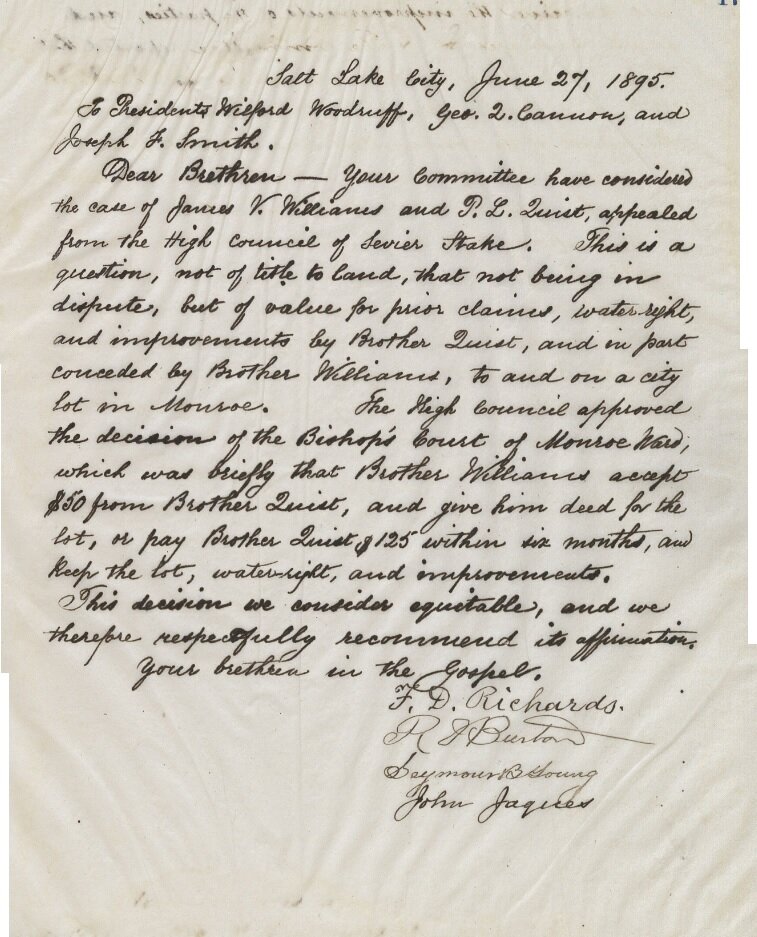 Salt Lake City, June 27, 1895.
To Presidents Wilford Woodruff, Geo. Q. Cannon, and
Joseph F. Smith.
Dear Brethren — Your Committee have considered
the case of James V. Williams and P. L. Quist, appealed
from the High Council of Sevier Stake. This is a
question, not of title to land, that not being in
dispute, but of value for prior claims, water-right,
and improvements by Brother Quist, and in part
conceded by Brother Williams, to and on a city
lot in Monroe. The High Council approved
the decision of the Bishop's Court of Monroe Ward,
which was briefly that Brother Williams accept
$50 from Brother Quist, and give him deed for the
lot, or pay Brother Quist $125 within six months, and
keep the lot, water-right, and improvements.
This decision we consider equitable, and we
therefore respectfully recommend its affirmation.
Your brethren in the Gospel.
F. D. Richards.
R T Burton
Seymour B Young
John Jaques